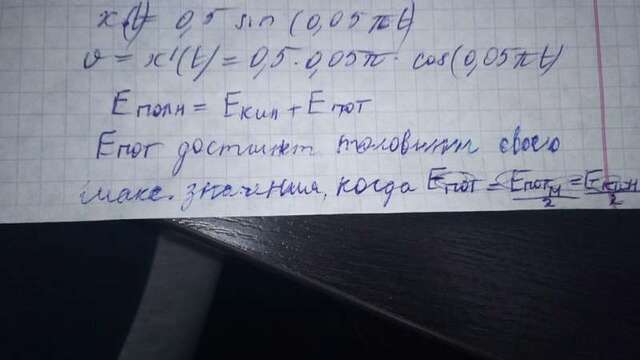 x(t) = 0,5 sin (0,05πt)
υ = x'(t) = 0,5 · 0,05π · cos(0,05πt)
Eполн = Eкин + Eпот
Eпот достигнет половины своего
макс. значения, когда Eпот = Eпотм/2 = Eкин/2